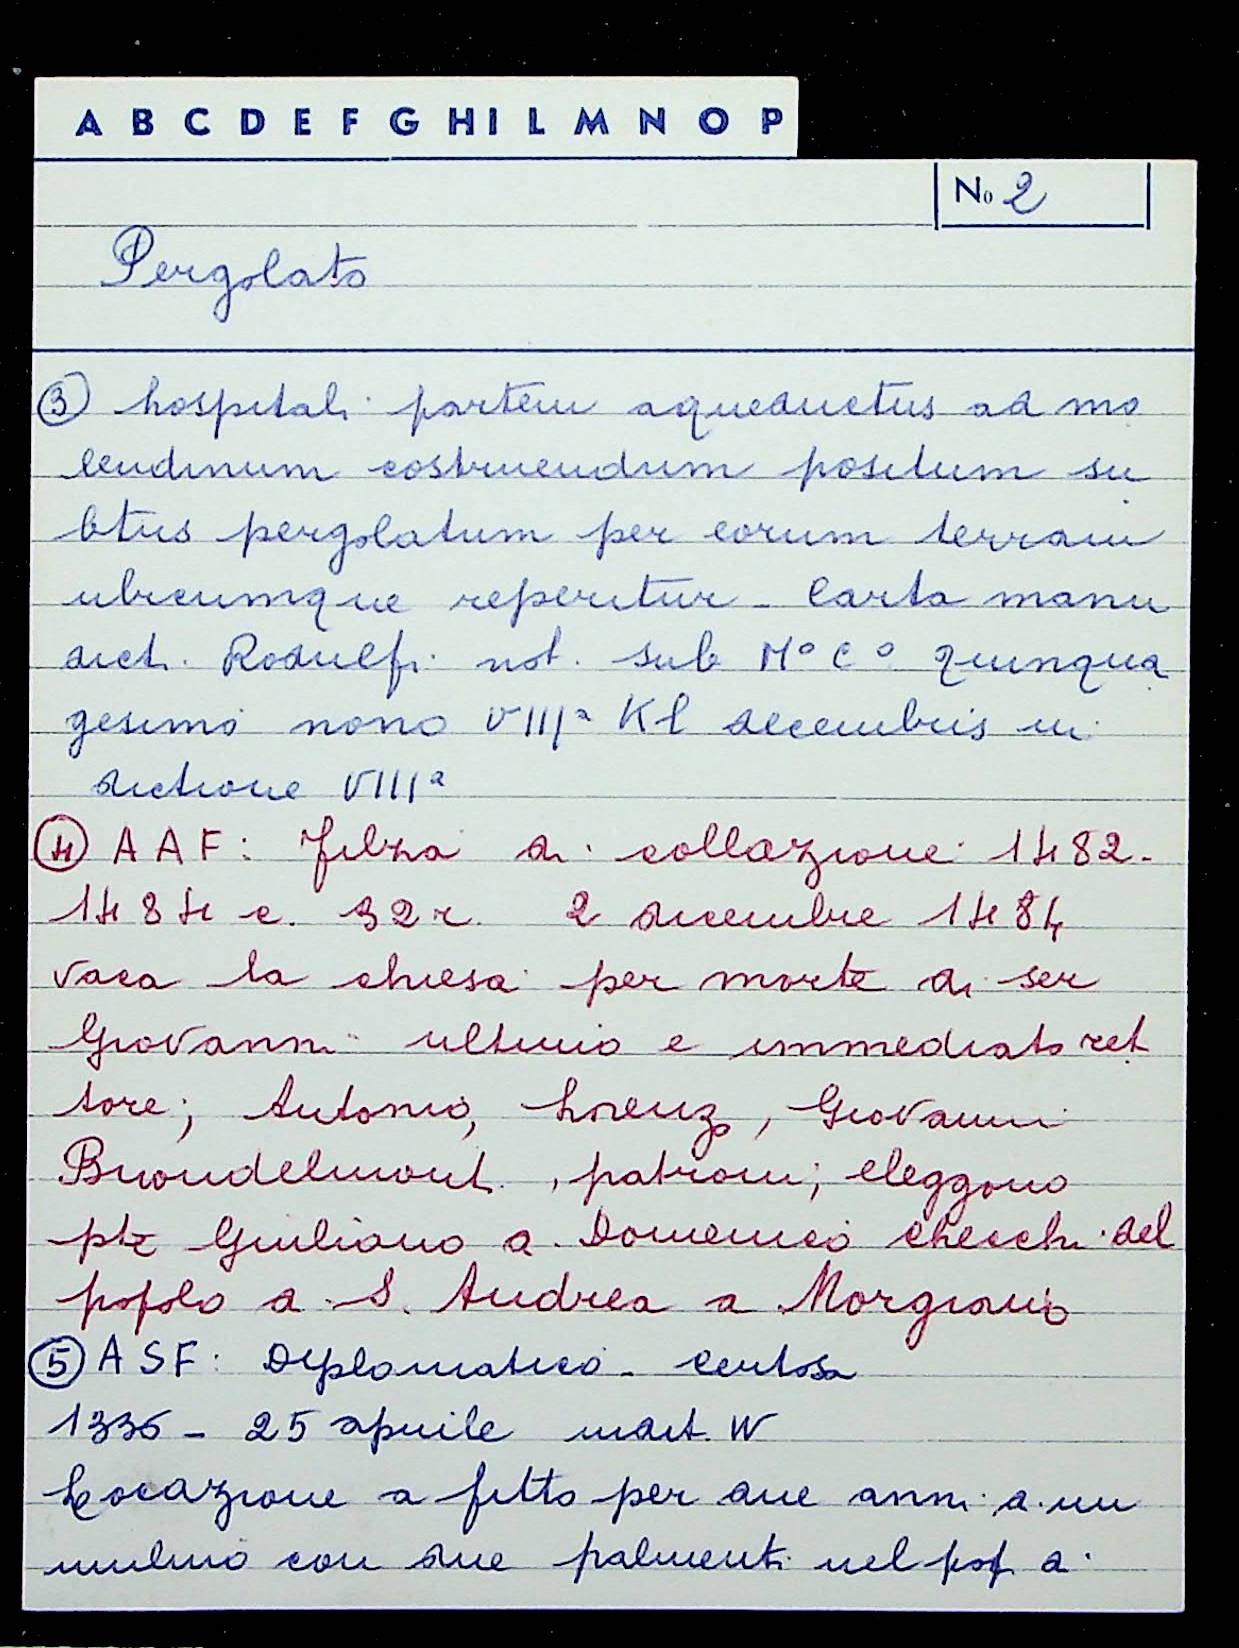 A B C D E F G H I L M N O P
No 2
Pergolato
③ hospitali partem aqueductus ad mo
lendinum costruendum positum su
btus pergolatum per eorum terram
ubicumque reperitur - Carta manu
dicti Rodulfi not. sub M° C° quinqua
gesimo nono VIIIª Kl decembris in
dictione VIIIª
④ A A F: Filza di collazione 1482-
1484 c. 32r. 2 dicembre 1484
vaca la chiesa per morte di ser
Giovanni ultimo e immediato ret
tore; Antonio, Lorenzo, Giovanni
Buondelmonti, patroni; eleggono
pte Giuliano di Domenico Checchi del
popolo di S. Andrea a Morgiano
⑤ A S F: Diplomatico - Certosa
1336 - 25 aprile indit. IV
Locazione a fitto per due anni di un
mulino con due palmenti nel pop di